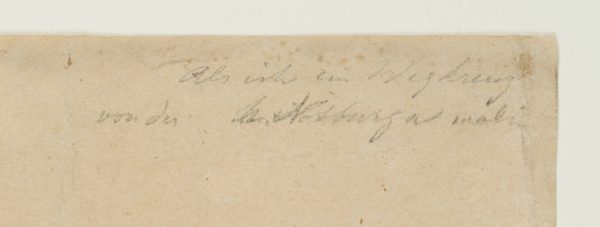 Als ich ein Wegkreuz
von der Notburga mal